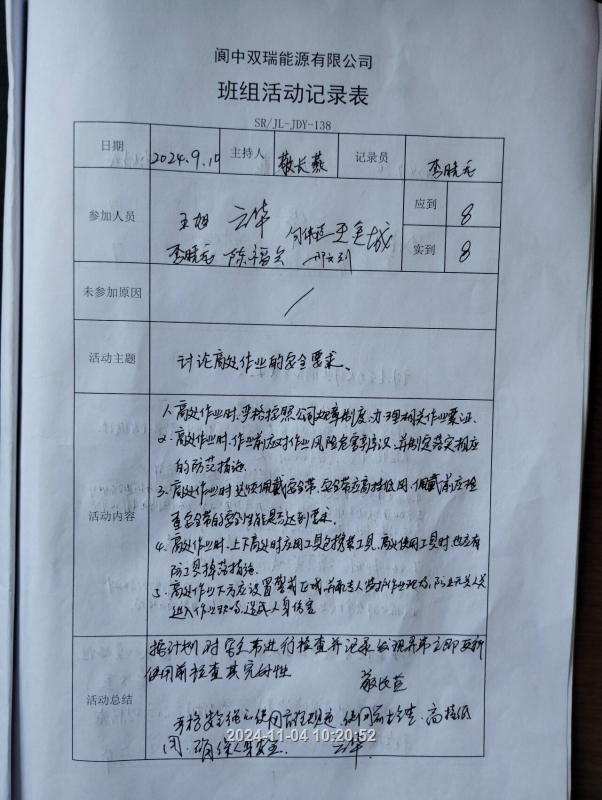 阆中双瑞能源有限公司
班组活动记录表
SR/JL-JDY-138
日期 2024.9.10 主持人 敬长燕 记录员 李晓元
参加人员 王旭 云华 王金城 应到 8
李晓元 陈福 实到 8
未参加原因 /
活动主题 讨论高处作业的安全要求、
活动内容
1、高处作业时,严格按照公司规章制度,办理相关作业票证.
2、高处作业时,作业前应对作业风险危害辨识,并制定落实相应
的防范措施.
3、高处作业时必须佩戴安全带、安全带应高挂低用、佩戴前应检
查安全带的安全性能是否达到要求.
4、高处作业时、上下高处时应用工具包携带工具,高处使用工具时,也应有
防工具掉落措施.
5、高处作业下方应设置警戒区域,并配专人监护作业现场,防止无关人员
进入作业现场,造成人身伤害
活动总结
按计划对安全带进行检查并记录,发现异常立即更新
使用前检查其完好性
敬长燕
严格 使用 高挂低
用、确保人身安全. 云华
2024-11-04 10:20:52